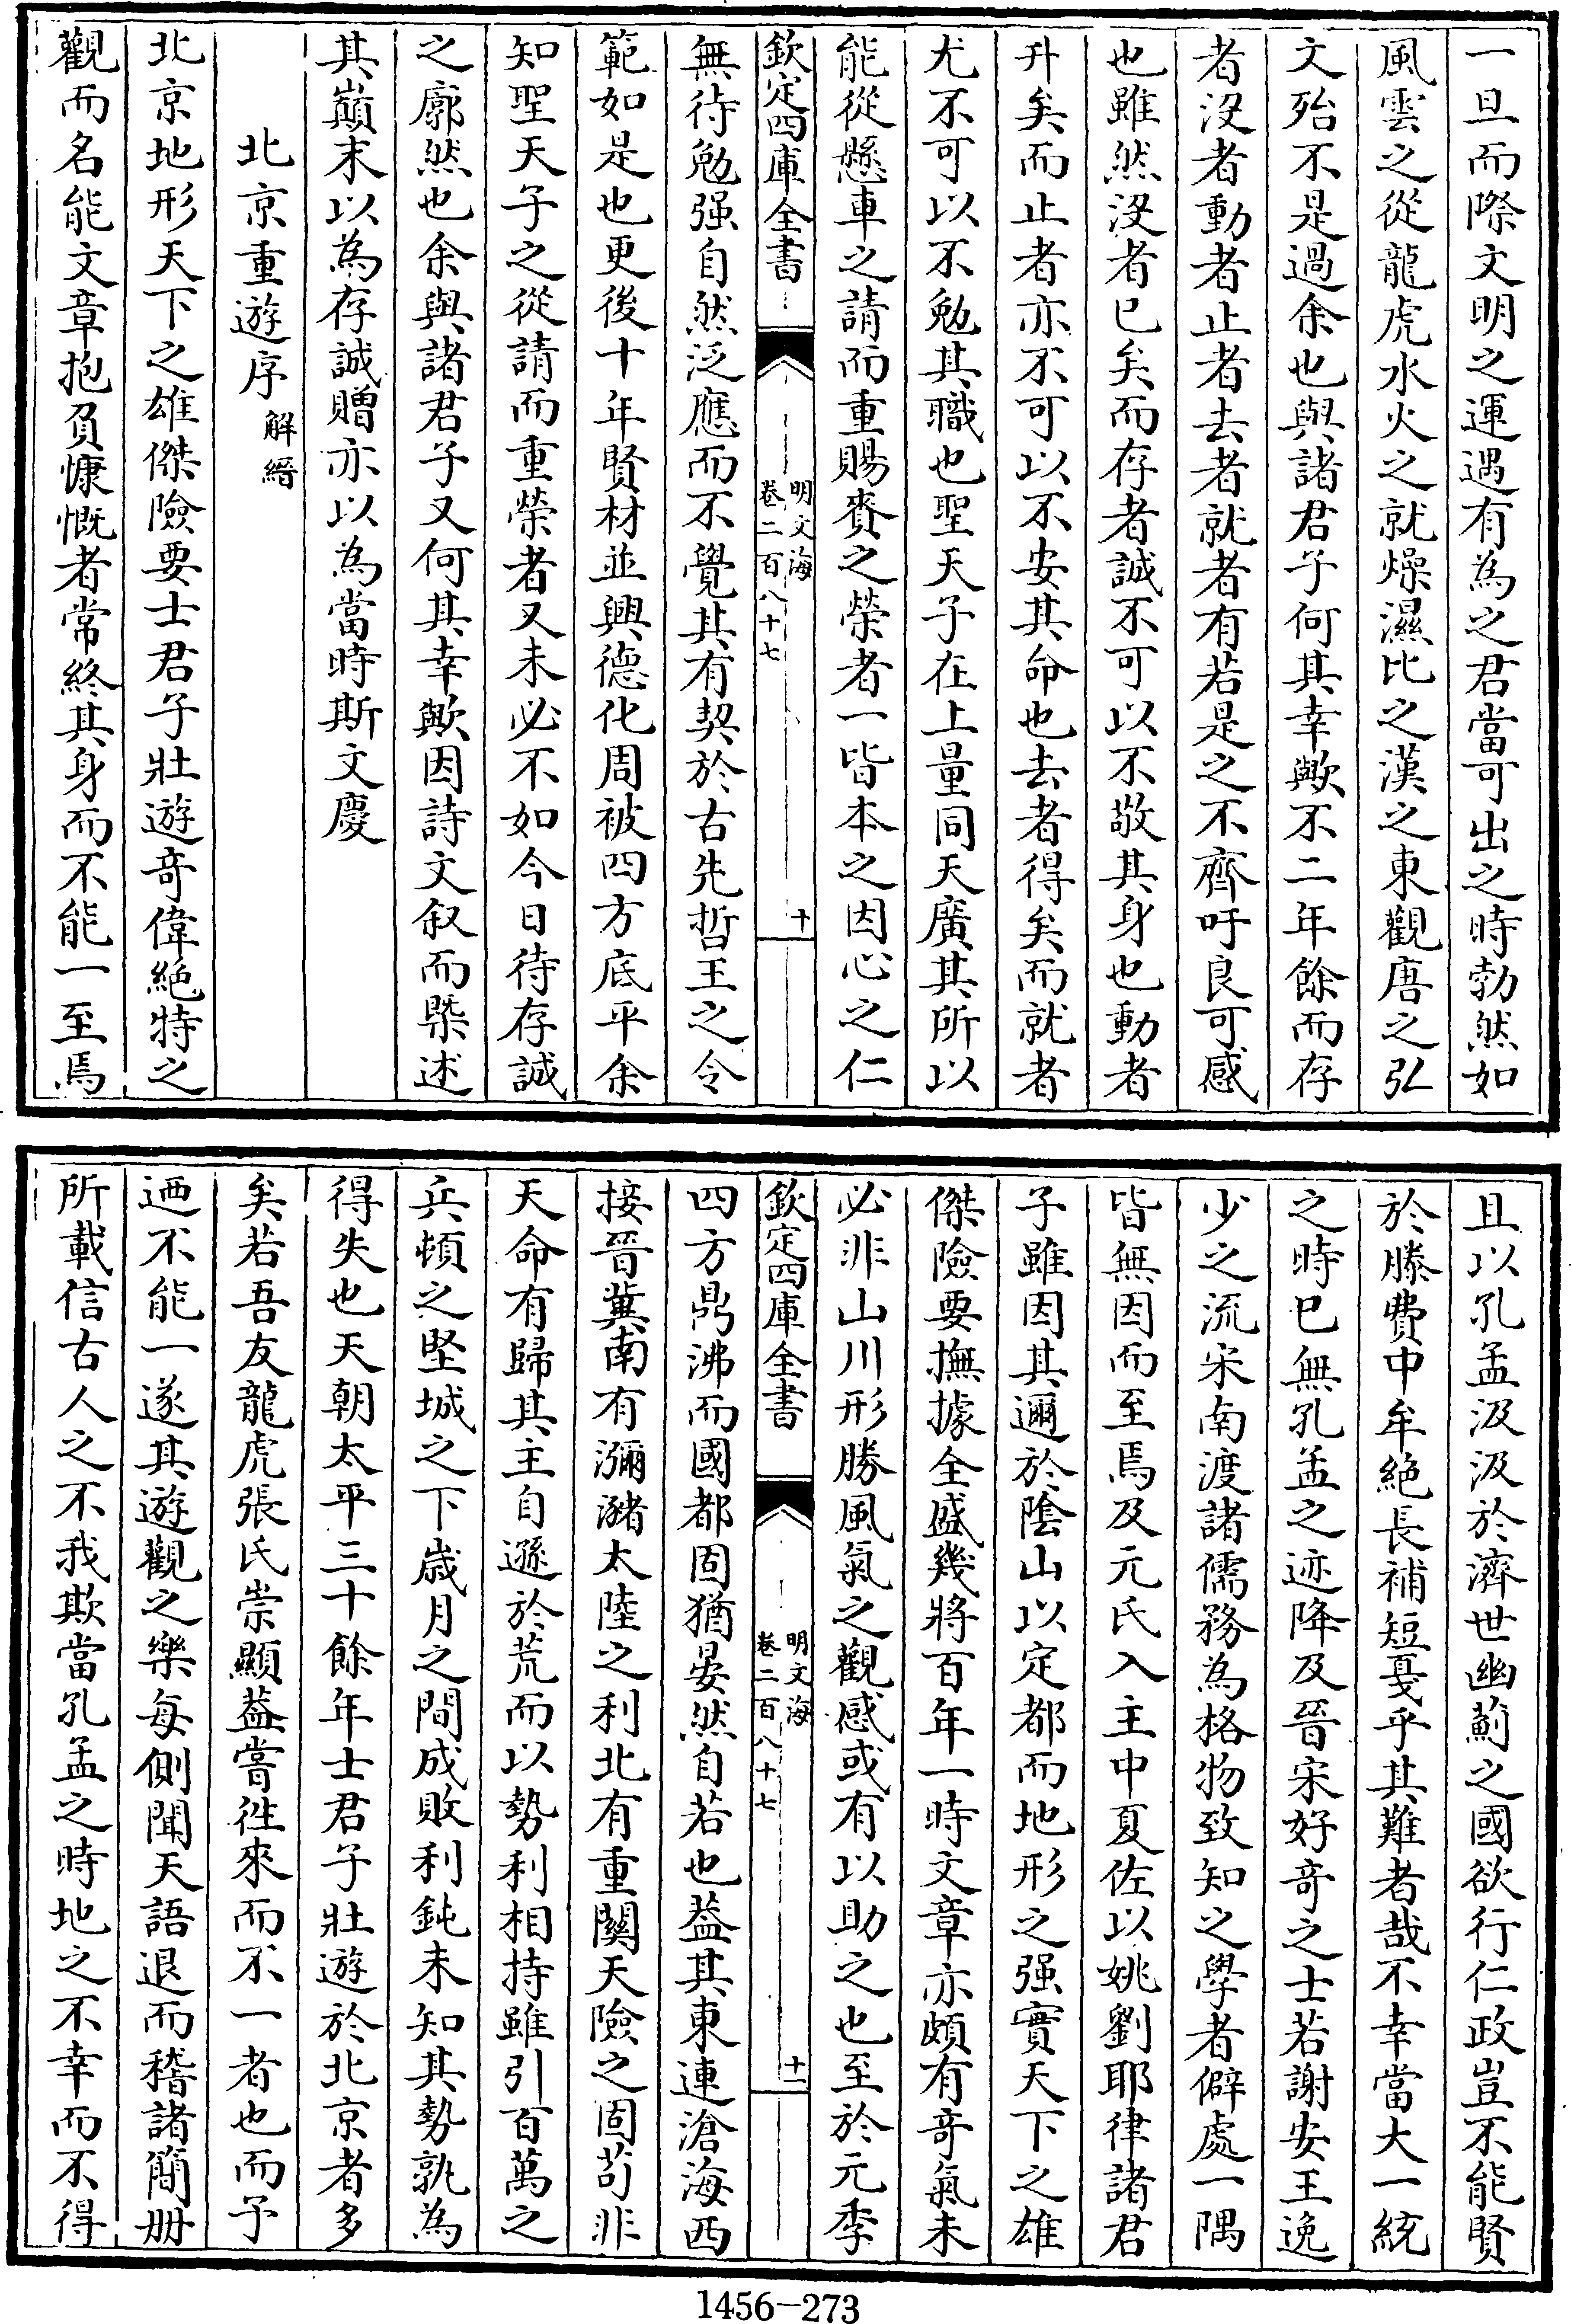 一旦而際文明之運遇有為之君當可出之時勃然如
風雲之從龍虎水火之就燥濕比之漢之東觀唐之弘
文殆不是過余也與諸君子何其幸歟不二年餘而存
者沒者動者止者去者就者有若是之不齊吁良可感
也雖然沒者已矣而存者誠不可以不敬其身也動者
升矣而止者亦不可以不安其命也去者得矣而就者
尤不可以不勉其職也聖天子在上量同天廣其所以
能從懸車之請而重賜賚之榮者一皆本之因心之仁
欽定四庫全書
明文海
卷二百八十七
十
無待勉强自然泛應而不覺其有契於古先哲王之令
範如是也更後十年賢材並興德化周被四方底平余
知聖天子之從請而重榮者又未必不如今日待存誠
之廓然也余與諸君子又何其幸歟因詩文叙而槩述
其巔末以為存誠贈亦以為當時斯文慶
北京重遊序 解縉
北京地形天下之雄傑險要士君子壯遊竒偉絶特之
觀而名能文章抱負慷慨者常終其身而不能一至焉
且以孔孟汲汲於濟世幽薊之國欲行仁政豈不能賢
於滕費中牟絶長補短戛乎其難者哉不幸當大一統
之時已無孔孟之迹降及晉宋好竒之士若謝安王逸
少之流宋南渡諸儒務為格物致知之學者僻處一隅
皆無因而至焉及元氏入主中夏佐以姚劉耶律諸君
子雖因其邇於陰山以定都而地形之强實天下之雄
傑險要撫據全盛幾將百年一時文章亦頗有竒氣未
必非山川形勝風氣之觀感或有以助之也至於元季
欽定四庫全書
明文海
卷二百八十七
十一
四方鼎沸而國都固猶晏然自若也葢其東連滄海西
接晉冀南有瀰瀦太陸之利北有重關天險之固茍非
天命有歸其主自遜於荒而以勢利相持雖引百萬之
兵頓之堅城之下歲月之間成敗利鈍未知其勢孰為
得失也天朝太平三十餘年士君子壯遊於北京者多
矣若吾友龍虎張氏崇顯葢嘗徃來而不一者也而予
迺不能一遂其遊觀之樂每側聞天語退而稽諸簡册
所載信古人之不我欺當孔孟之時地之不幸而不得
1456-273